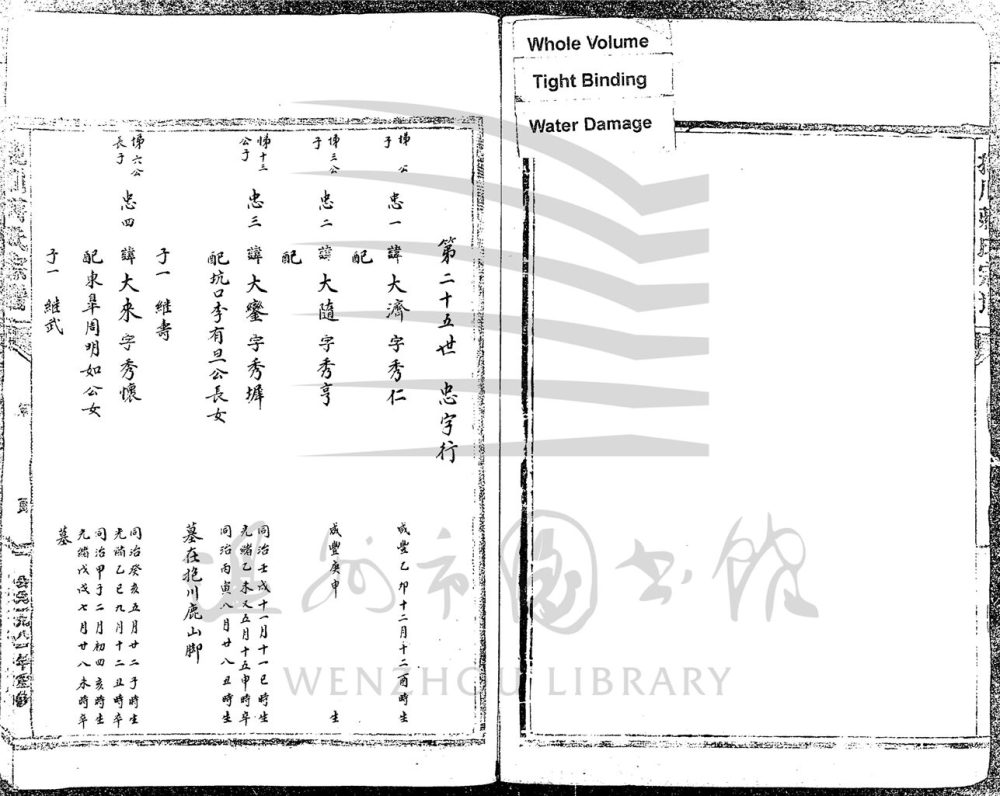 Whole Volume
Tight Binding
Water Damage
第二十五世 忠字行
悌 公
子
忠一 諱大濟字秀仁
咸豐乙卯十二月十二酉時生
配
悌三公
子
忠二 諱大隨字秀亨
咸豐庚申 生
配
悌十三
公子
忠三 諱大鑾字秀墀
同治壬戌十一月十一巳時生
光緒乙未又五月十五申時卒
配坑口李有旦公長女
同治丙寅八月廿八丑時生
墓在抱川鹿山腳
子一 維壽
悌六公
長子
忠四 諱大來字秀懷
同治癸亥五月廿二子時生
光緒乙巳九月十二丑時卒
配東皐周明如公女
同治甲子二月初四亥時生
光緒戊戌七月廿八未時卒
子一 維武
墓
頁
溫州市圖書館
WENZHOU LIBRARY